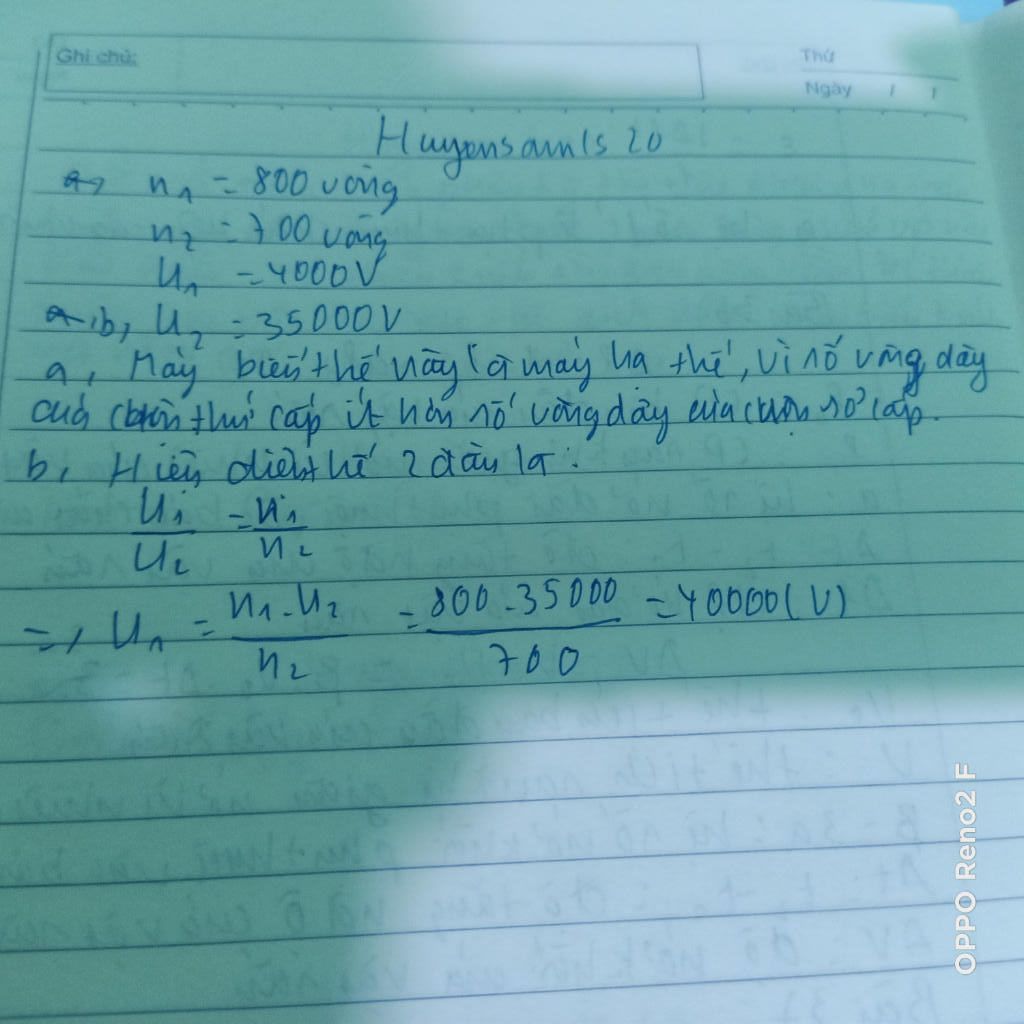 Ghi chú:
Thứ
Ngày / /
Huyensamls 20
n1 = 800 vòng
n2 = 700 vòng
U1 = 4000V
b, U2 = 35000V
a, Máy biến thế này là máy hạ thế, vì số vòng dây
của cuộn thứ cấp ít hơn số vòng dây của cuộn sơ cấp.
b, Hiệu điện thế 2 đầu là :
U1/U2 = n1/n2
=> U1 = n1.U2/n2 = 800.35000/700 = 40000(V)
OPPO Reno2 F